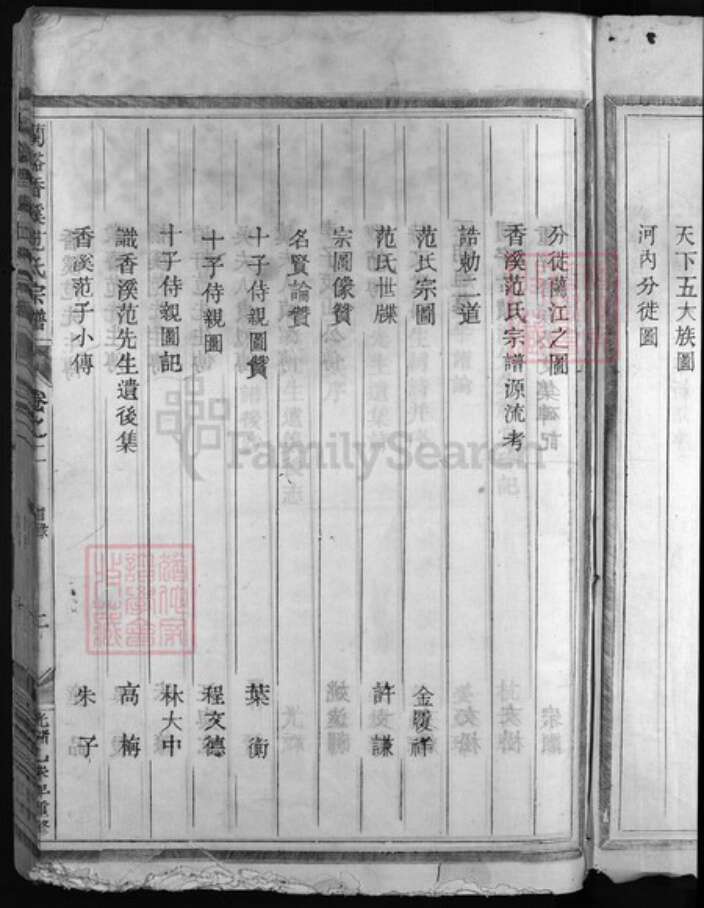 天下五大族圖
河內分徙圖
分徙蘭江之圖
香溪范氏宗譜源流考
誥勅二道
范氏宗圖 金履祥
范氏世牒 許謙
宗圖像贊
名賢論贊
十子侍親圖贊 葉衡
十子侍親圖 程文德
十子侍親圖記 林大中
識香溪范先生遺後集 高栴
香溪范子小傳 朱子
蘭谿香溪范氏宗譜 卷之二 目錄 二
FamilySearch